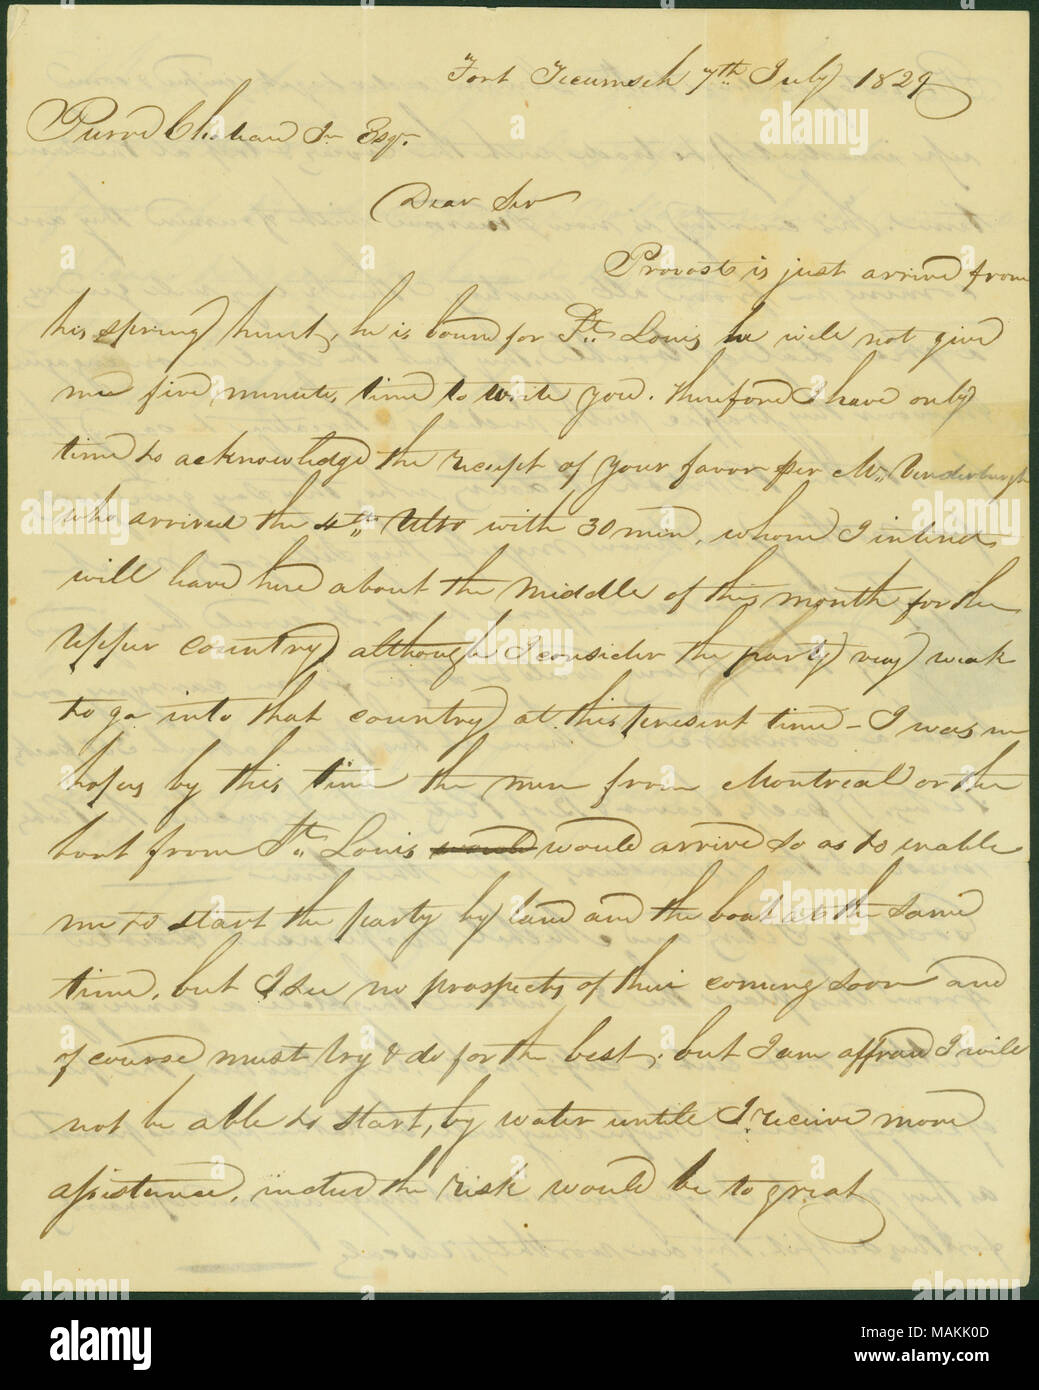 Fort Tecumseh 7th July 1829
Pierre Chouteau Jr Esqr.
Dear Sir
Provost is just arrived from
his spring hunt, he is bound for St. Louis he will not give
me five minute, time to write you. therefore I have only
time to acknowledge the receipt of your favor per Mr. Vanderburgh
who arrived the 4th Ulto with 30 men, whom I intend
will leave here about the middle of this month for the
Upper country, although I consider the party very weak
to go into that country at this present time – I was in
hopes by this time the men from Montreal or the
boat from St. Louis would would arrive so as to enable
me to start the party by land and the boat at the same
time, but I see no prospects of their coming soon and
of course must try & do for the best, but I am affraid I will
not be able to start, by water untill I receive more
assistance, indeed the risk would be to great
alamy
www.alamy.com
Image ID: MAKK0D